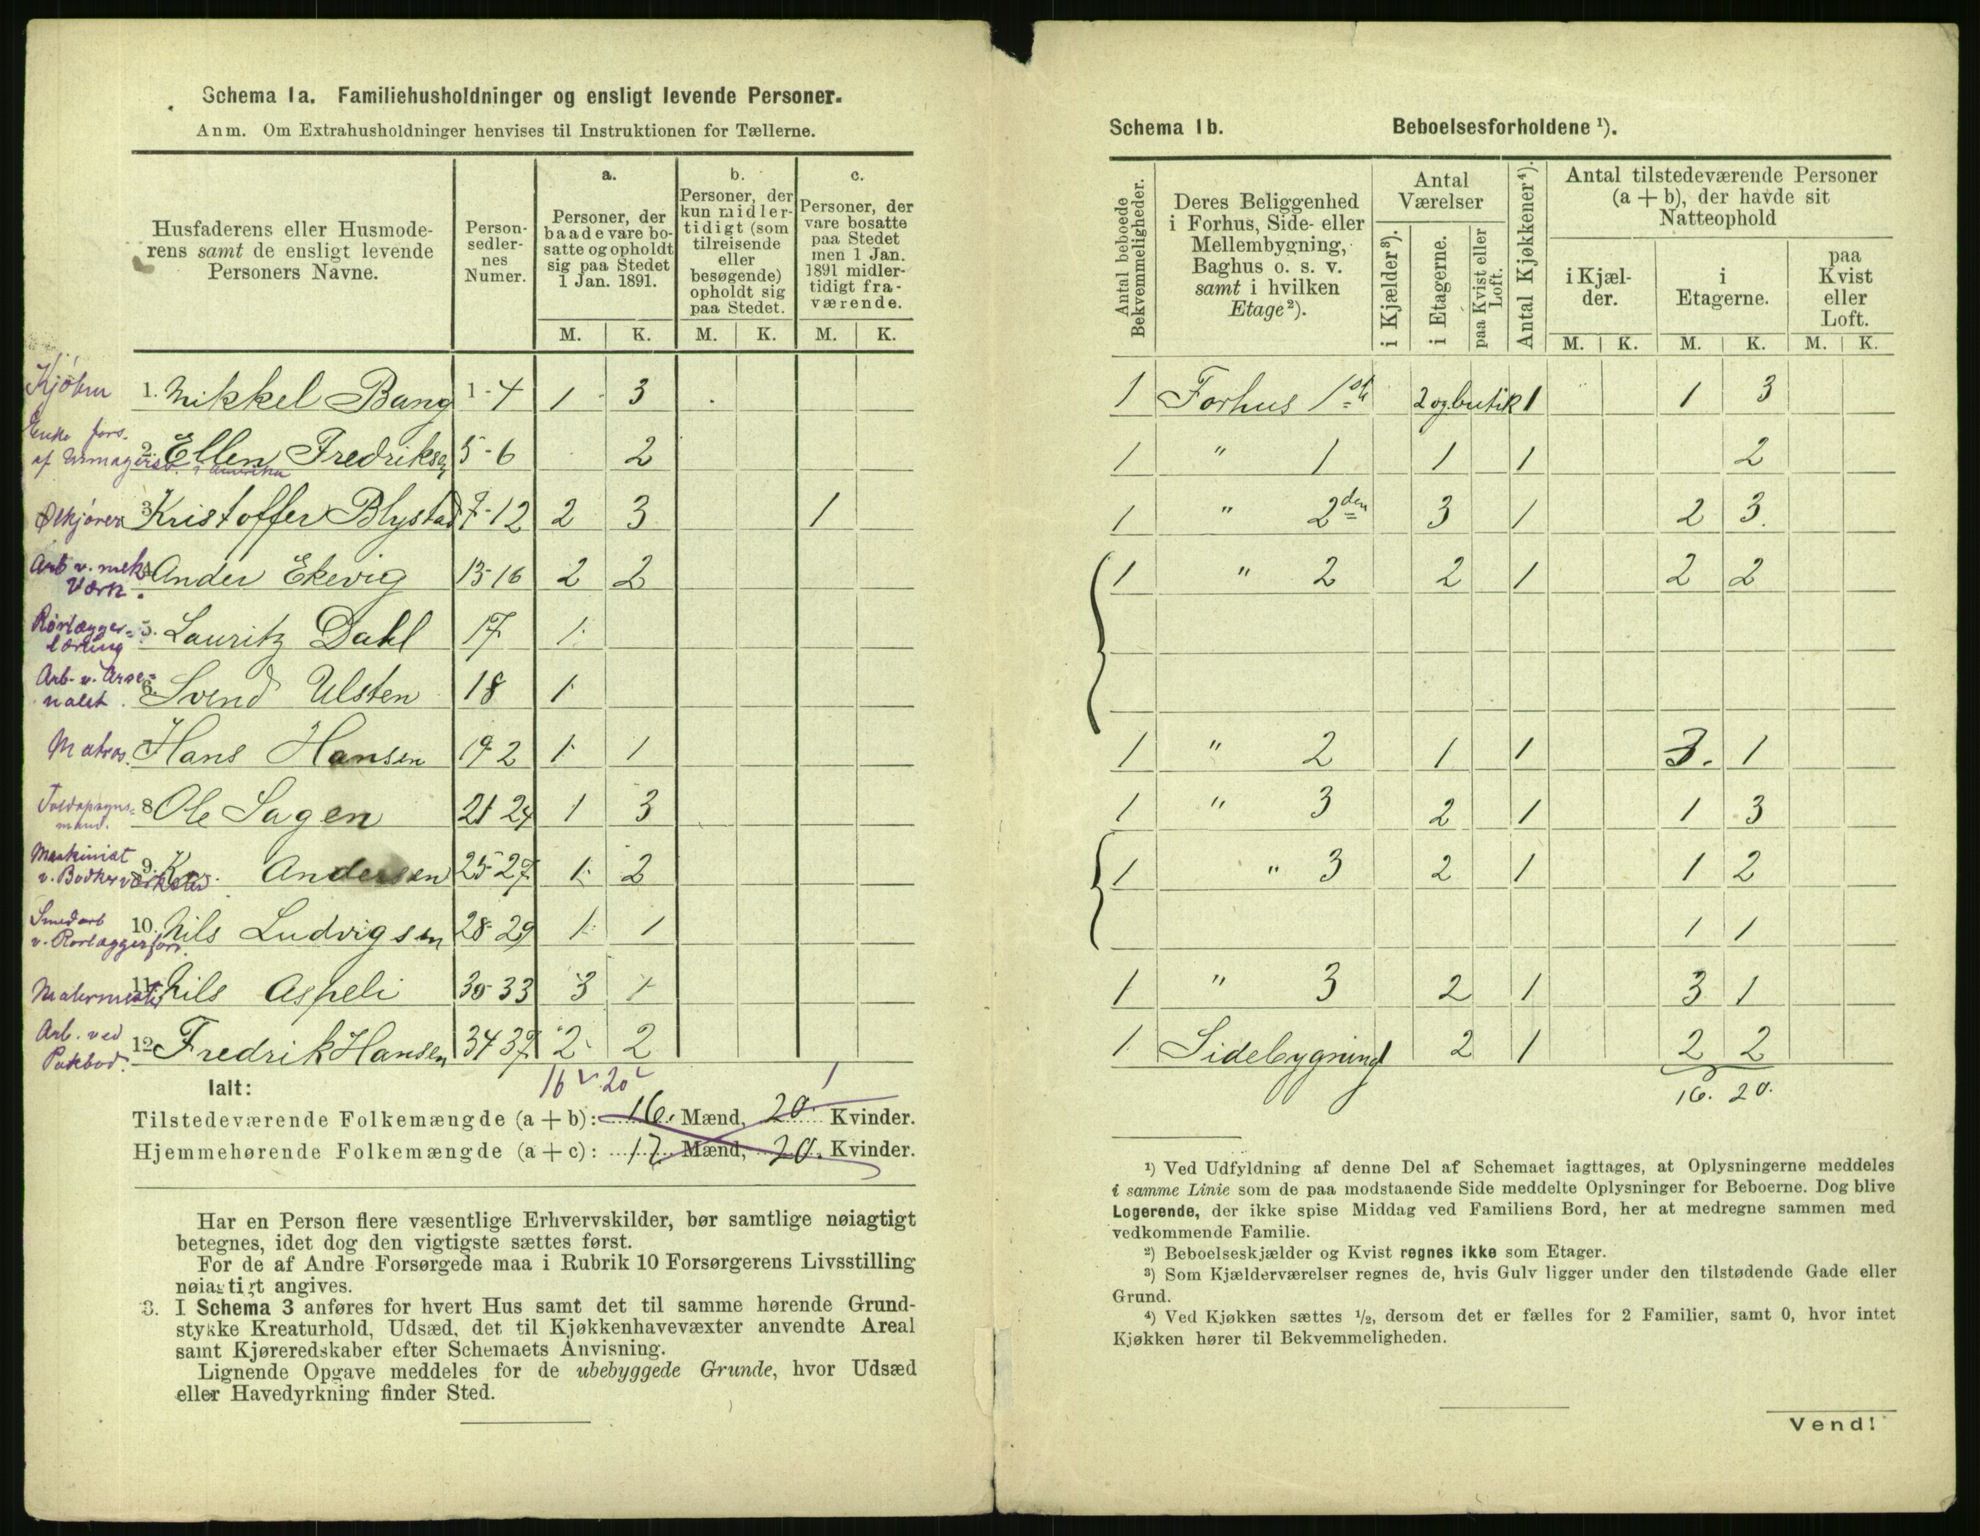 Schema 1a. Familiehusholdninger og ensligt levende Personer.
Anm. Om Extrahusholdninger henvises til Instruktionen for Tællerne.
Husfaderens eller Husmode-
rens samt de ensligt levende
Personers Navne.
Person-
sedler-
nes
Numer.
a.
Personer, der
baade vare bo-
satte og opholdt
sig paa Stedet
1 Jan. 1891.
b.
Personer, der
kun midler-
tidigt (som
tilreisende
eller
besøgende)
opholdt sig
paa Stedet.
c.
Personer, der
vare bosatte
paa Stedet
men 1 Jan.
1891 midler-
tidigt fra-
værende.
M. K. M. K. M. K.
1. Mikkel Bang 1-4 1 3
Enke fors.
af Urmagersv. i Amerika
2. Ellen Fredriksen 5-6 2
Ølkjører 3. Kristoffer Blystad 7-12 2 3 1
Arb v. mek.
Værk.
4. Ander Ekevig 13-16 2 2
Rørlægger-
lærling
5. Lauritz Dahl 17 1
Arb. v. Arse-
nalet
6. Svend Ulsten 18 1
Matros. 7. Hans Hansen 19-2 1 1
8 Ole Sagen 21 24 1 3
Maskinist
v. Bødkerværksted
9. Kr. Andersen 25-27 1 2
Smedarb
v. Rørlæggerforr.
10. Nils Ludvigsen 28-29 1 1
Malermester 11. Nils Aspeli 30-33 3 1
Arb. ved
Pakbod.
12. Fredrik Hansen 34 37 2 2
16 20 1
Ialt:
Tilstedeværende Folkemængde (a + b): 16. Mænd, 20. Kvinder.
Hjemmehørende Folkemængde (a + c): 17 Mænd, 20. Kvinder.
Har en Person flere væsentlige Erhvervskilder, bør samtlige nøiagtigt
betegnes, idet dog den vigtigste sættes først.
For de af Andre Forsørgede maa i Rubrik 10 Forsørgerens Livsstilling
nøiagtigt angives.
3. I Schema 3 anføres for hvert Hus samt det til samme hørende Grund-
stykke Kreaturhold, Udsæd, det til Kjøkkenhavevæxter anvendte Areal
samt Kjøreredskaber efter Schemaets Anvisning.
Lignende Opgave meddeles for de ubebyggede Grunde, hvor Udsæd
eller Havedyrkning finder Sted.
Schema 1b. Beboelsesforholdene ¹).
Antal beboede
Bekvemmeligheder.
Deres Beliggenhed
i Forhus, Side- eller
Mellembygning,
Baghus o. s. v.
samt i hvilken
Etage²).
Antal
Værelser
i Kjælder³).
i Etagerne.
paa Kvist eller
Loft.
Antal Kjøkkener⁴).
Antal tilstedeværende Personer
(a + b), der havde sit
Natteophold
i Kjæl-
der.
i
Etagerne.
paa
Kvist
eller
Loft.
M. K. M. K. M. K.
1 Forhus 1ste 2 og butik 1 1 3
1 " 1 1 1 2
1 " 2den 3 1 2 3.
1 " 2 2 1 2 2
1 " 2 1 1 3. 1
1 " 3 2 1 1 3
1 " 3 2 1 1 2
1 1
1 " 3 2 1 3 1
1 Sidebygning 2 1 2 2
16. 20.
¹) Ved Udfyldning af denne Del af Schemaet iagttages, at Oplysningerne meddeles
i samme Linie som de paa modstaaende Side meddelte Oplysninger for Beboerne. Dog blive
Logerende, der ikke spise Middag ved Familiens Bord, her at medregne sammen med
vedkommende Familie.
²) Beboelseskjælder og Kvist regnes ikke som Etager.
³) Som Kjælderværelser regnes de, hvis Gulv ligger under den tilstødende Gade eller
Grund.
⁴) Ved Kjøkken sættes ½, dersom det er fælles for 2 Familier, samt 0, hvor intet
Kjøkken hører til Bekvemmeligheden.
Vend!